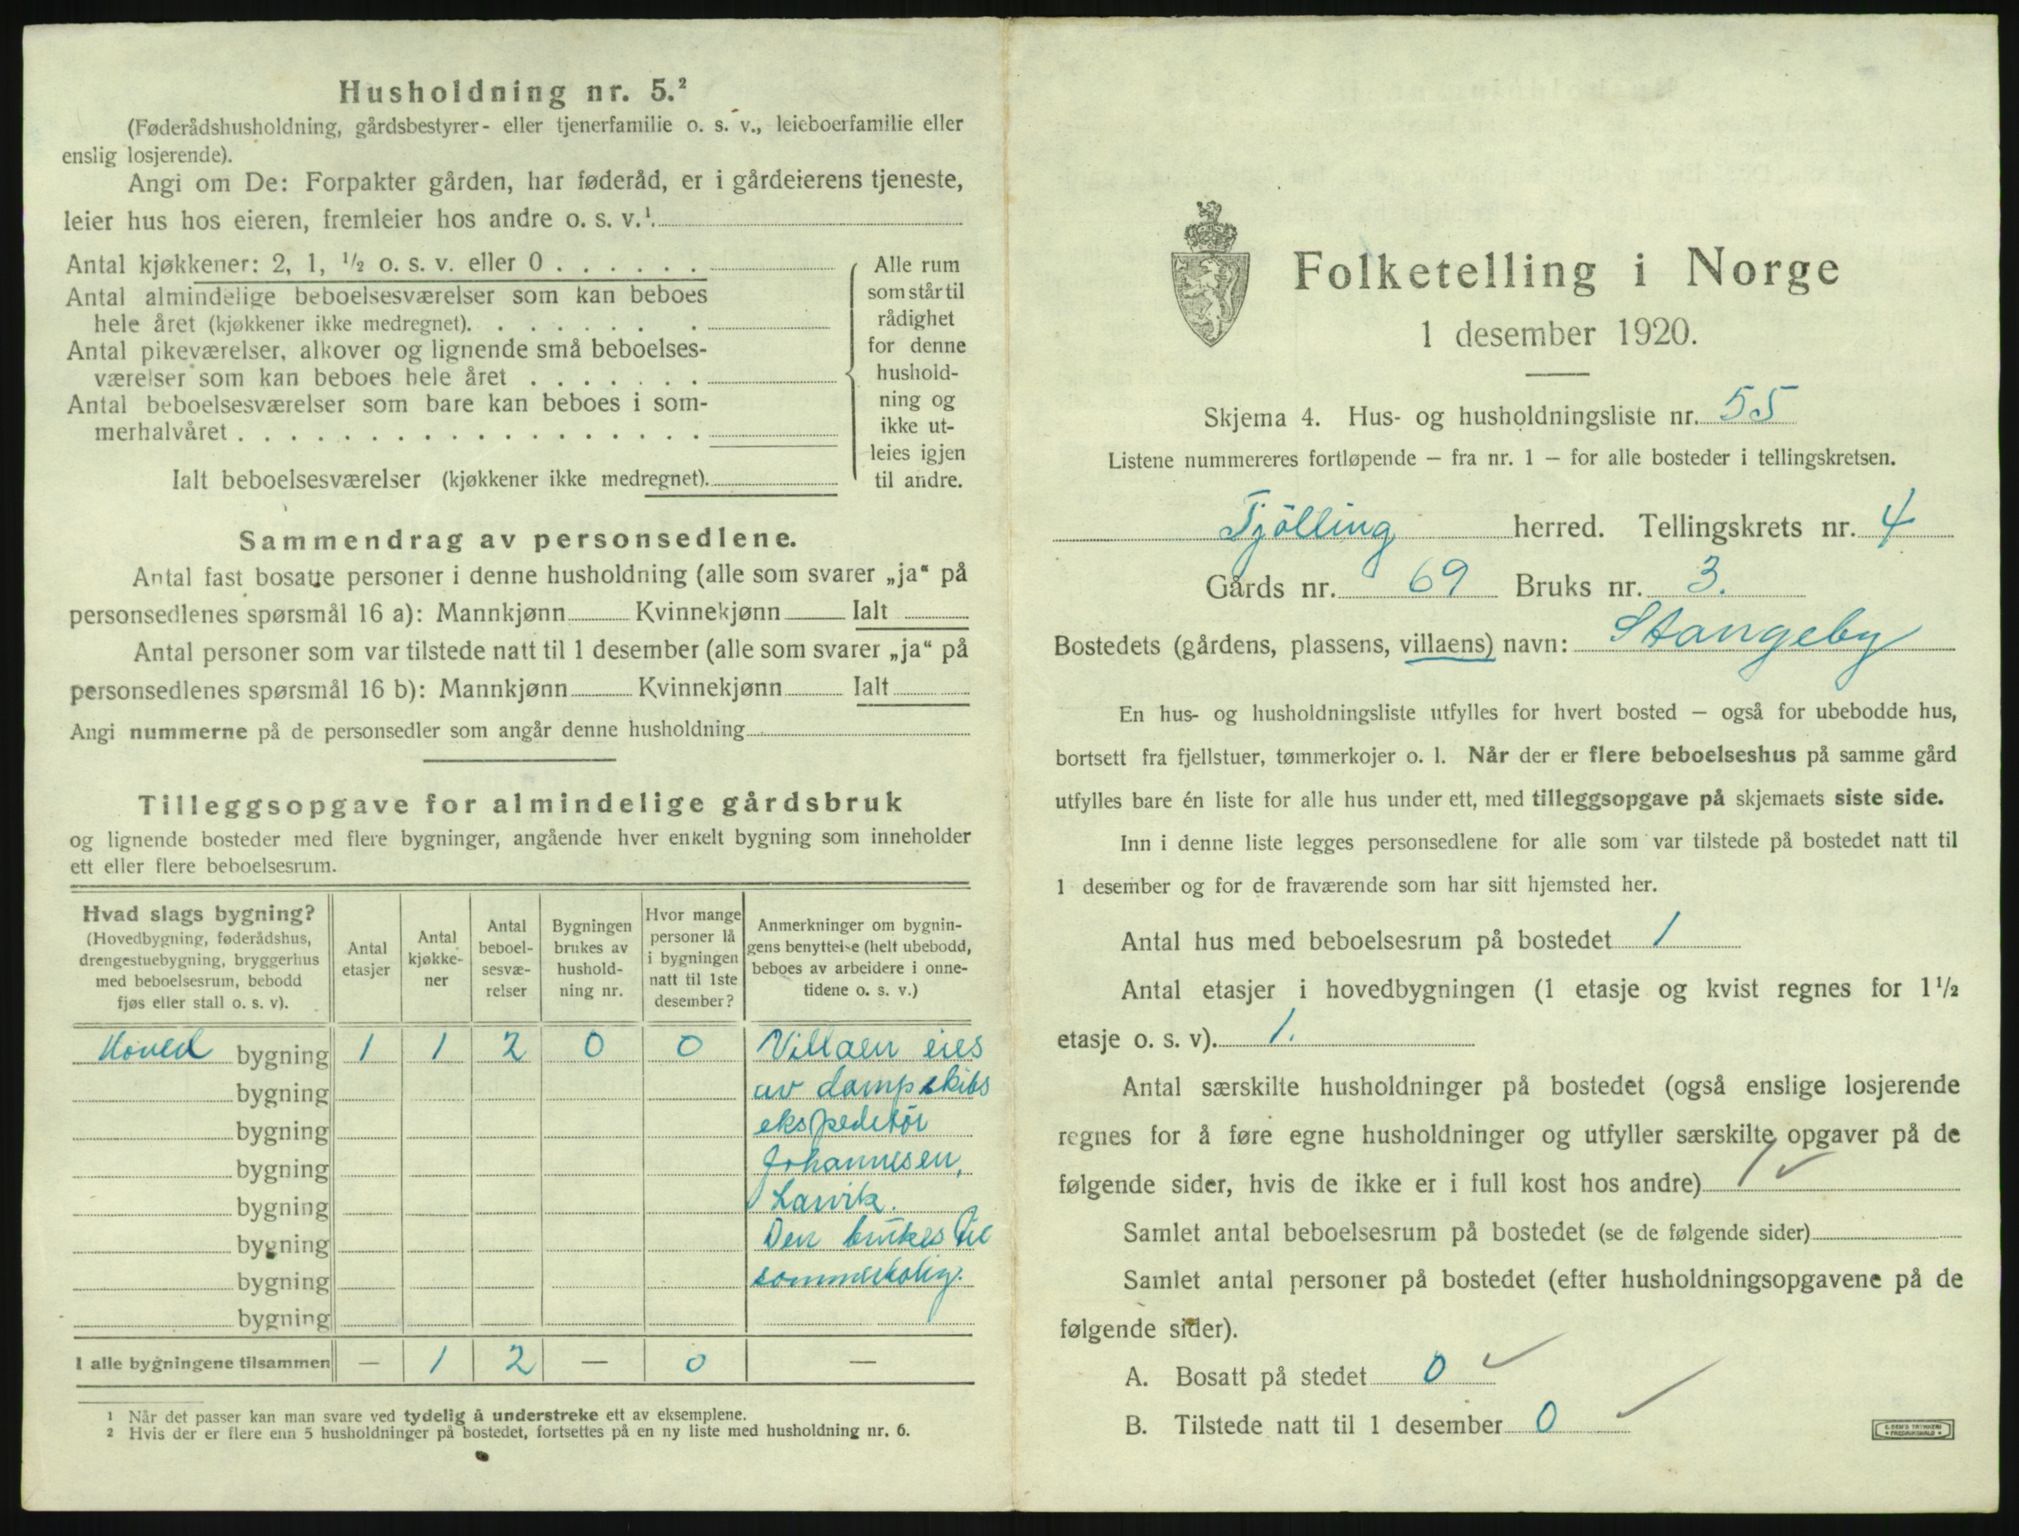 Husholdning nr. 5.²
(Føderådshusholdning, gårdsbestyrer- eller tjenerfamilie o. s. v., leieboerfamilie eller
enslig losjerende).
Angi om De: Forpakter gården, har føderåd, er i gårdeierens tjeneste,
leier hus hos eieren, fremleier hos andre o. s. v.¹
Antal kjøkkener: 2, 1, ½ o. s. v. eller 0
Antal almindelige beboelsesværelser som kan beboes
hele året (kjøkkener ikke medregnet).
Antal pikeværelser, alkover og lignende små beboelses-
værelser som kan beboes hele året
Antal beboelsesværelser som bare kan beboes i som-
merhalvåret
Ialt beboelsesværelser (kjøkkener ikke medregnet).
Alle rum
som står til
rådighet
for denne
hushold-
ning og
ikke ut-
leies igjen
til andre.
Sammendrag av personsedlene.
Antal fast bosatte personer i denne husholdning (alle som svarer „ja“ på
personsedlenes spørsmål 16 a): Mannkjønn Kvinnekjønn Ialt
Antal personer som var tilstede natt til 1 desember (alle som svarer „ja“ på
personsedlenes spørsmål 16 b): Mannkjønn Kvinnekjønn Ialt
Angi nummerne på de personsedler som angår denne husholdning
Tilleggsopgave for almindelige gårdsbruk
og lignende bosteder med flere bygninger, angående hver enkelt bygning som inneholder
ett eller flere beboelsesrum.
Hvad slags bygning?
(Hovedbygning, føderådshus,
drengestuebygning, bryggerhus
med beboelsesrum, bebodd
fjøs eller stall o. s. v).
Antal
etasjer
Antal
kjøkke-
ner
Antal
beboel-
sesvæ-
relser
Bygningen
brukes av
hushold-
ning nr.
Hvor mange
personer lå
i bygningen
natt til 1ste
desember?
Anmerkninger om bygnin-
gens benyttelse (helt ubebodd,
beboes av arbeidere i onne-
tidene o. s. v.)
Hoved bygning 1 1 2 0 0 Villaen eies
bygning av dampskibs
bygning ekspeditør
bygning Johannesen,
bygning Larvik.
bygning Den brukes til
bygning sommerbolig.
bygning
I alle bygningene tilsammen — 1 2 — 0 —
¹ Når det passer kan man svare ved tydelig å understreke ett av eksemplene.
² Hvis der er flere enn 5 husholdninger på bostedet, fortsettes på en ny liste med husholdning nr. 6.
Folketelling i Norge
1 desember 1920.
Skjema 4. Hus- og husholdningsliste nr. 55
Listene nummereres fortløpende – fra nr. 1 – for alle bosteder i tellingskretsen.
Tjölling herred. Tellingskrets nr. 4
Gårds nr. 69 Bruks nr. 3.
Bostedets (gårdens, plassens, villaens) navn: Stangeby
En hus- og husholdningsliste utfylles for hvert bosted – også for ubebodde hus,
bortsett fra fjellstuer, tømmerkojer o. l. Når der er flere beboelseshus på samme gård
utfylles bare én liste for alle hus under ett, med tilleggsopgave på skjemaets siste side.
Inn i denne liste legges personsedlene for alle som var tilstede på bostedet natt til
1 desember og for de fraværende som har sitt hjemsted her.
Antal hus med beboelsesrum på bostedet 1
Antal etasjer i hovedbygningen (1 etasje og kvist regnes for 1½
etasje o. s. v). 1.
Antal særskilte husholdninger på bostedet (også enslige losjerende
regnes for å føre egne husholdninger og utfyller særskilte opgaver på de
følgende sider, hvis de ikke er i full kost hos andre)
Samlet antal beboelsesrum på bostedet (se de følgende sider)
Samlet antal personer på bostedet (efter husholdningsopgavene på de
følgende sider).
A. Bosatt på stedet 0
B. Tilstede natt til 1 desember 0